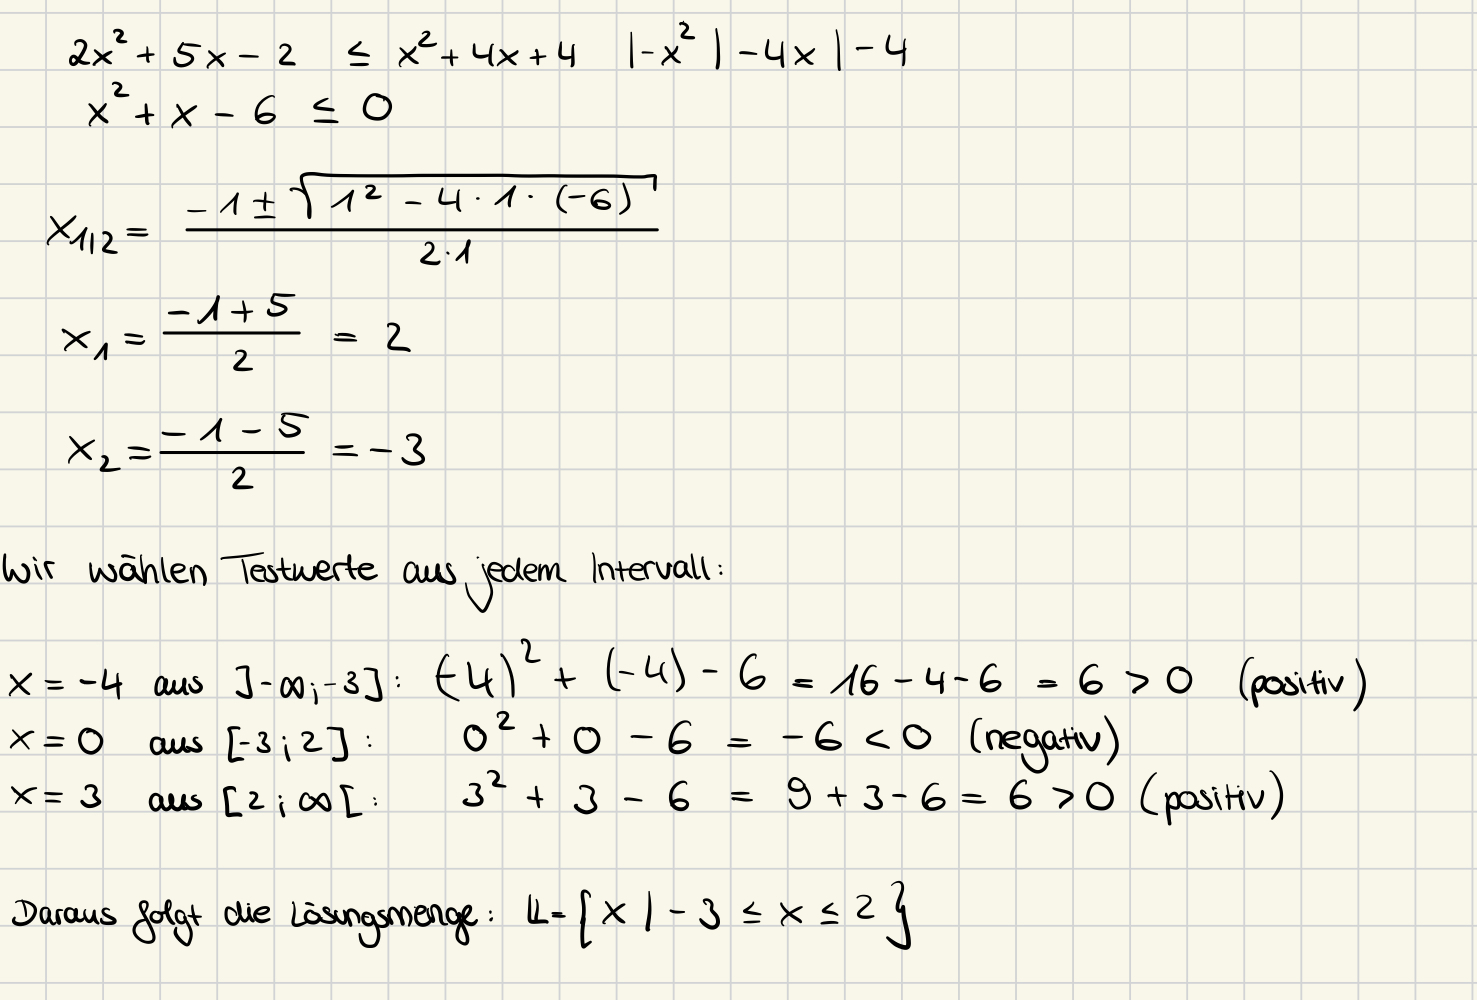 2x² + 5x - 2 ≤ x² + 4x + 4 |-x² | -4x | -4
x² + x - 6 ≤ 0
x₁|₂ = (-1 ± √(1² - 4 · 1 · (-6))) / (2·1)
x₁ = (-1 + 5) / 2 = 2
x₂ = (-1 - 5) / 2 = -3
Wir wählen Testwerte aus jedem Intervall:
x = -4 aus ]-∞;-3]: (-4)² + (-4) - 6 = 16 - 4 - 6 = 6 > 0 (positiv)
x = 0 aus [-3;2]: 0² + 0 - 6 = -6 < 0 (negativ)
x = 3 aus [2;∞[: 3² + 3 - 6 = 9 + 3 - 6 = 6 > 0 (positiv)
Daraus folgt die Lösungsmenge: 𝕃 = {x | -3 ≤ x ≤ 2}